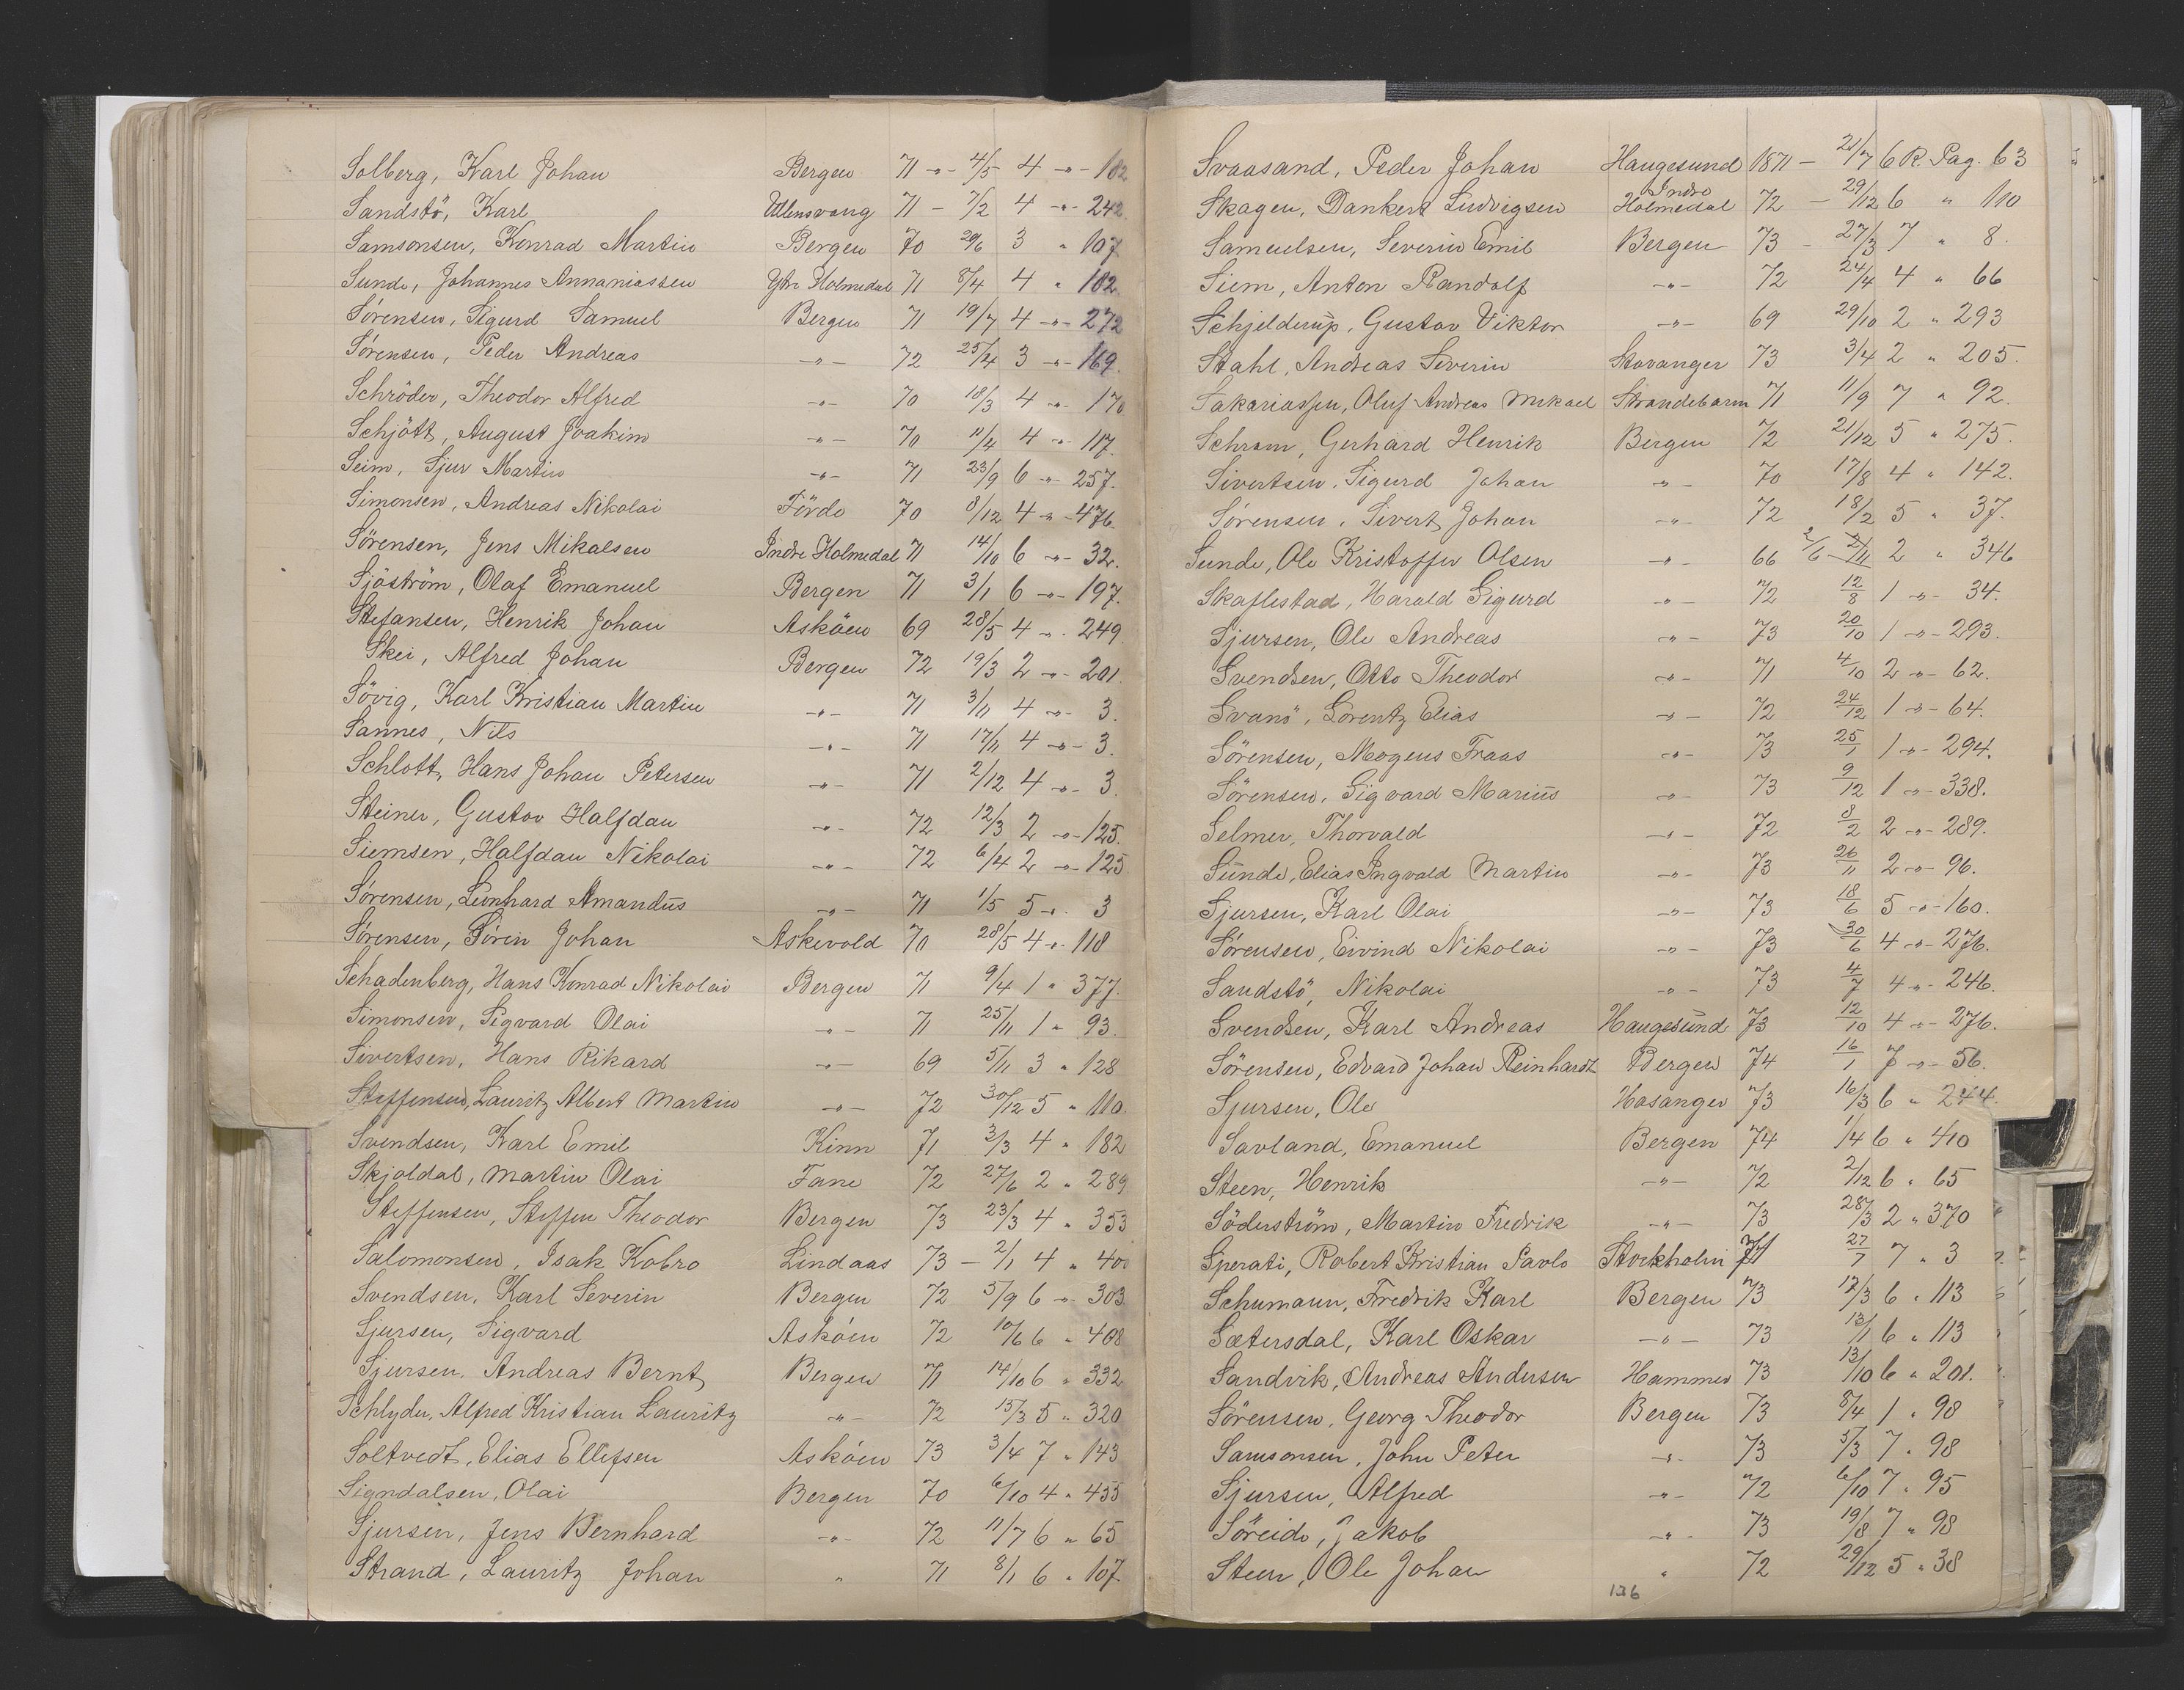 Solberg, Karl Johan Bergen 71 -"- 4/5 4 -"- 182
Sandstö, Karl Ullensvang 71 - 7/2 4 -"- 242.
Samsonsen, Konrad Martin Bergen 70 29/6 3 " 107
Sunde, Johannes Annaniassen Ytre Holmedal 71 8/4 4 " 182.
Sörensen, Sigurd Samuel Bergen 71 19/7 4 -"- 272
Sörensen, Peder Andreas -"- 72 25/4 3 -"- 169.
Schröder, Theodor Alfred -"- 70 18/3 4 -"- 170
Schjött, August Joakim -"- 70 11/4 4 -"- 117.
Seim, Sjur Martin -"- 71 23/9 6 -"- 257.
Simonsen, Andreas Nikolai Förde 70 8/12 4 -"- 476.
Sörensen, Jens Mikalsen Indre Holmedal 71 14/10 6 -"- 32.
Sjöström, Olaf Emanuel Bergen 71 3/1 6 -"- 197.
Stefansen, Henrik Johan Asköen 69 28/5 4 -"- 249.
Skei, Alfred Johan Bergen 72 19/3 2 -"- 201.
Sövig, Karl Kristian Martin -"- 71 3/11 4 -"- 3.
Sannes, Nils -"- 71 17/11 4 -"- 3.
Schlott, Hans Johan Petersen -"- 71 2/12 4 -"- 3.
Steiner, Gustav Halfdan -"- 72 12/3 2 -"- 125.
Siemsen, Halfdan Nikolai -"- 72 6/4 2 -"- 125
Sörensen, Leonhard Amandus -"- 71 1/5 5 -"- 3
Sörensen, Sören Johan Askevold 70 28/5 4 -"- 118
Schadenberg, Hans Konrad Nikolai Bergen 71 9/4 1 " 377.
Simonsen, Sigvard Olai -"- 71 25/11 1 " 93.
Sivertsen, Hans Rikard -"- 69 5/11 3 " 128
Steffensen, Lauritz Albert Martin -"- 72 30/12 5 " 110.
Svendsen, Karl Emil Kinn 71 3/3 4 " 182
Skjoldal, Martin Olai Fane 72 27/6 2 " 289
Steffensen, Steffen Theodor Bergen 73 23/3 4 " 353
Salomonsen, Isak Kobro Lindaas 73 - 2/1 4 " 400
Svendsen, Karl Severin Bergen 72 5/9 6 -"- 303
Sjursen, Sigvard Asköen 72 10/6 6 " 408
Sjursen, Andreas Bernt Bergen 71 14/10 6 " 332
Schlyder, Alfred Kristian Lauritz -"- 72 15/3 5 " 320
Soltvedt, Elias Ellefsen Asköen 73 3/4 7 " 143
Signdalsen, Olai Bergen 70 6/10 4 " 455
Sjursen, Jens Bernhard -"- 72 11/7 6 " 65
Strand, Lauritz Johan " 71 8/1 6 " 107
Svaasand, Peder Johan Haugesund 1871 - 21/7 6 R. Pag. 63
Skagen, Dankert Ludvigsen Indre Holmedal 72 - 29/12 6 " 110
Samuelsen, Severin Emil Bergen 73 - 27/3 7 " 8.
Siem, Anton Randolf -"- 72 24/4 4 " 66
Schjelderup, Gustav Viktor -"- 69 29/10 2 " 293
Stahl, Andreas Severin Stavanger 73 3/4 2 " 205.
Sakariassen, Oluf Andreas Mikael Strandebarm 71 11/9 7 " 92.
Schram, Gerhard Henrik Bergen 72 21/12 5 " 275.
Sivertsen, Sigurd Johan -"- 70 17/8 4 " 142.
Sörensen, Sivert Johan -"- 72 18/2 5 " 37.
Sunde, Ole Kristoffer Olsen -"- 66 2/6 2/11 2 " 346
Skaflestad, Harald Sigurd -"- 72 12/8 1 -"- 34.
Sjursen, Ole Andreas -"- 73 20/10 1 -"- 293.
Svendsen, Otto Theodor -"- 71 4/10 2 -"- 62.
Svanö, Lorentz Elias -"- 72 24/12 1 -"- 64.
Sörensen, Mogens Fraas -"- 73 25/1 1 -"- 294.
Sörensen, Sigvard Marius -"- 73 9/12 1 -"- 338.
Selmer, Thorvald -"- 72 8/2 2 -"- 289.
Sunde, Elias Ingvald Martin -"- 73 26/11 2 -"- 96.
Sjursen, Karl Olai -"- 73 18/6 5 -"- 160.
Sörensen, Eivind Nikolai -"- 73 30/6 4 -"- 276.
Sandstö, Nikolai -"- 73 4/7 4 -"- 246.
Svendsen, Karl Andreas Haugesund 73 12/10 4 -"- 276.
Sörensen, Edvard Johan Reinhardt Bergen 74 16/1 7 -"- 56.
Sjursen, Ole Hosanger 73 16/3 6 " 244.
Savland, Emanuel Bergen 74 1/4 6 " 410
Steen, Henrik -"- 72 2/12 6 " 65
Söderström, Martin Fredrik -"- 73 28/3 2 " 370
Sperati, Robert Kristian Paolo Stockholm 71 27/7 7 " 3
Schumann, Fredrik Karl Bergen 73 17/3 6 " 113
Sætersdal, Karl Oskar -"- 73 13/11 6 " 113
Sandvik, Andreas Andersen Hammer 73 13/10 6 " 201.
Sörensen, Georg Theodor Bergen 73 8/4 1 " 98
Samsonsen, John Peter -"- 73 5/3 7 " 98
Sjursen, Alfred -"- 72 6/10 7 " 95
Söreide, Jakob -"- 73 19/8 7 " 98
Steen, Ole Johan " 72 29/12 5 " 38
136